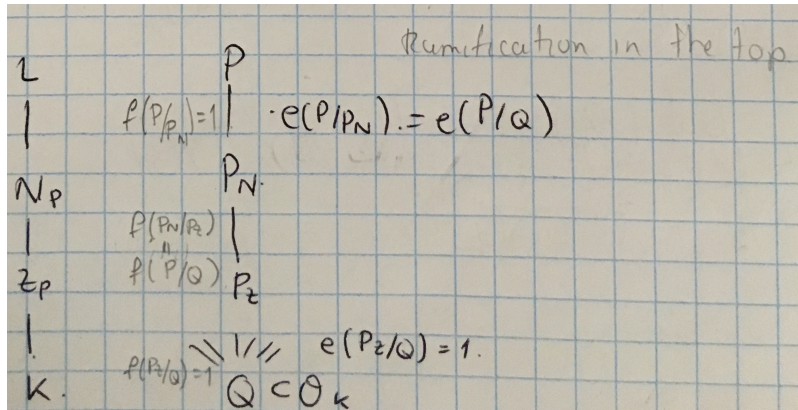 Ramification in the top
L P
f(P/P_N)=1 · e(P/P_N) . = e(P/Q)
N_P P_N.
f(P_N/P_Z)
=
f(P/Q)
Z_P P_Z
e(P_Z/Q) = 1.
f(P_Z/Q)=1
K. Q ⊂ O_K